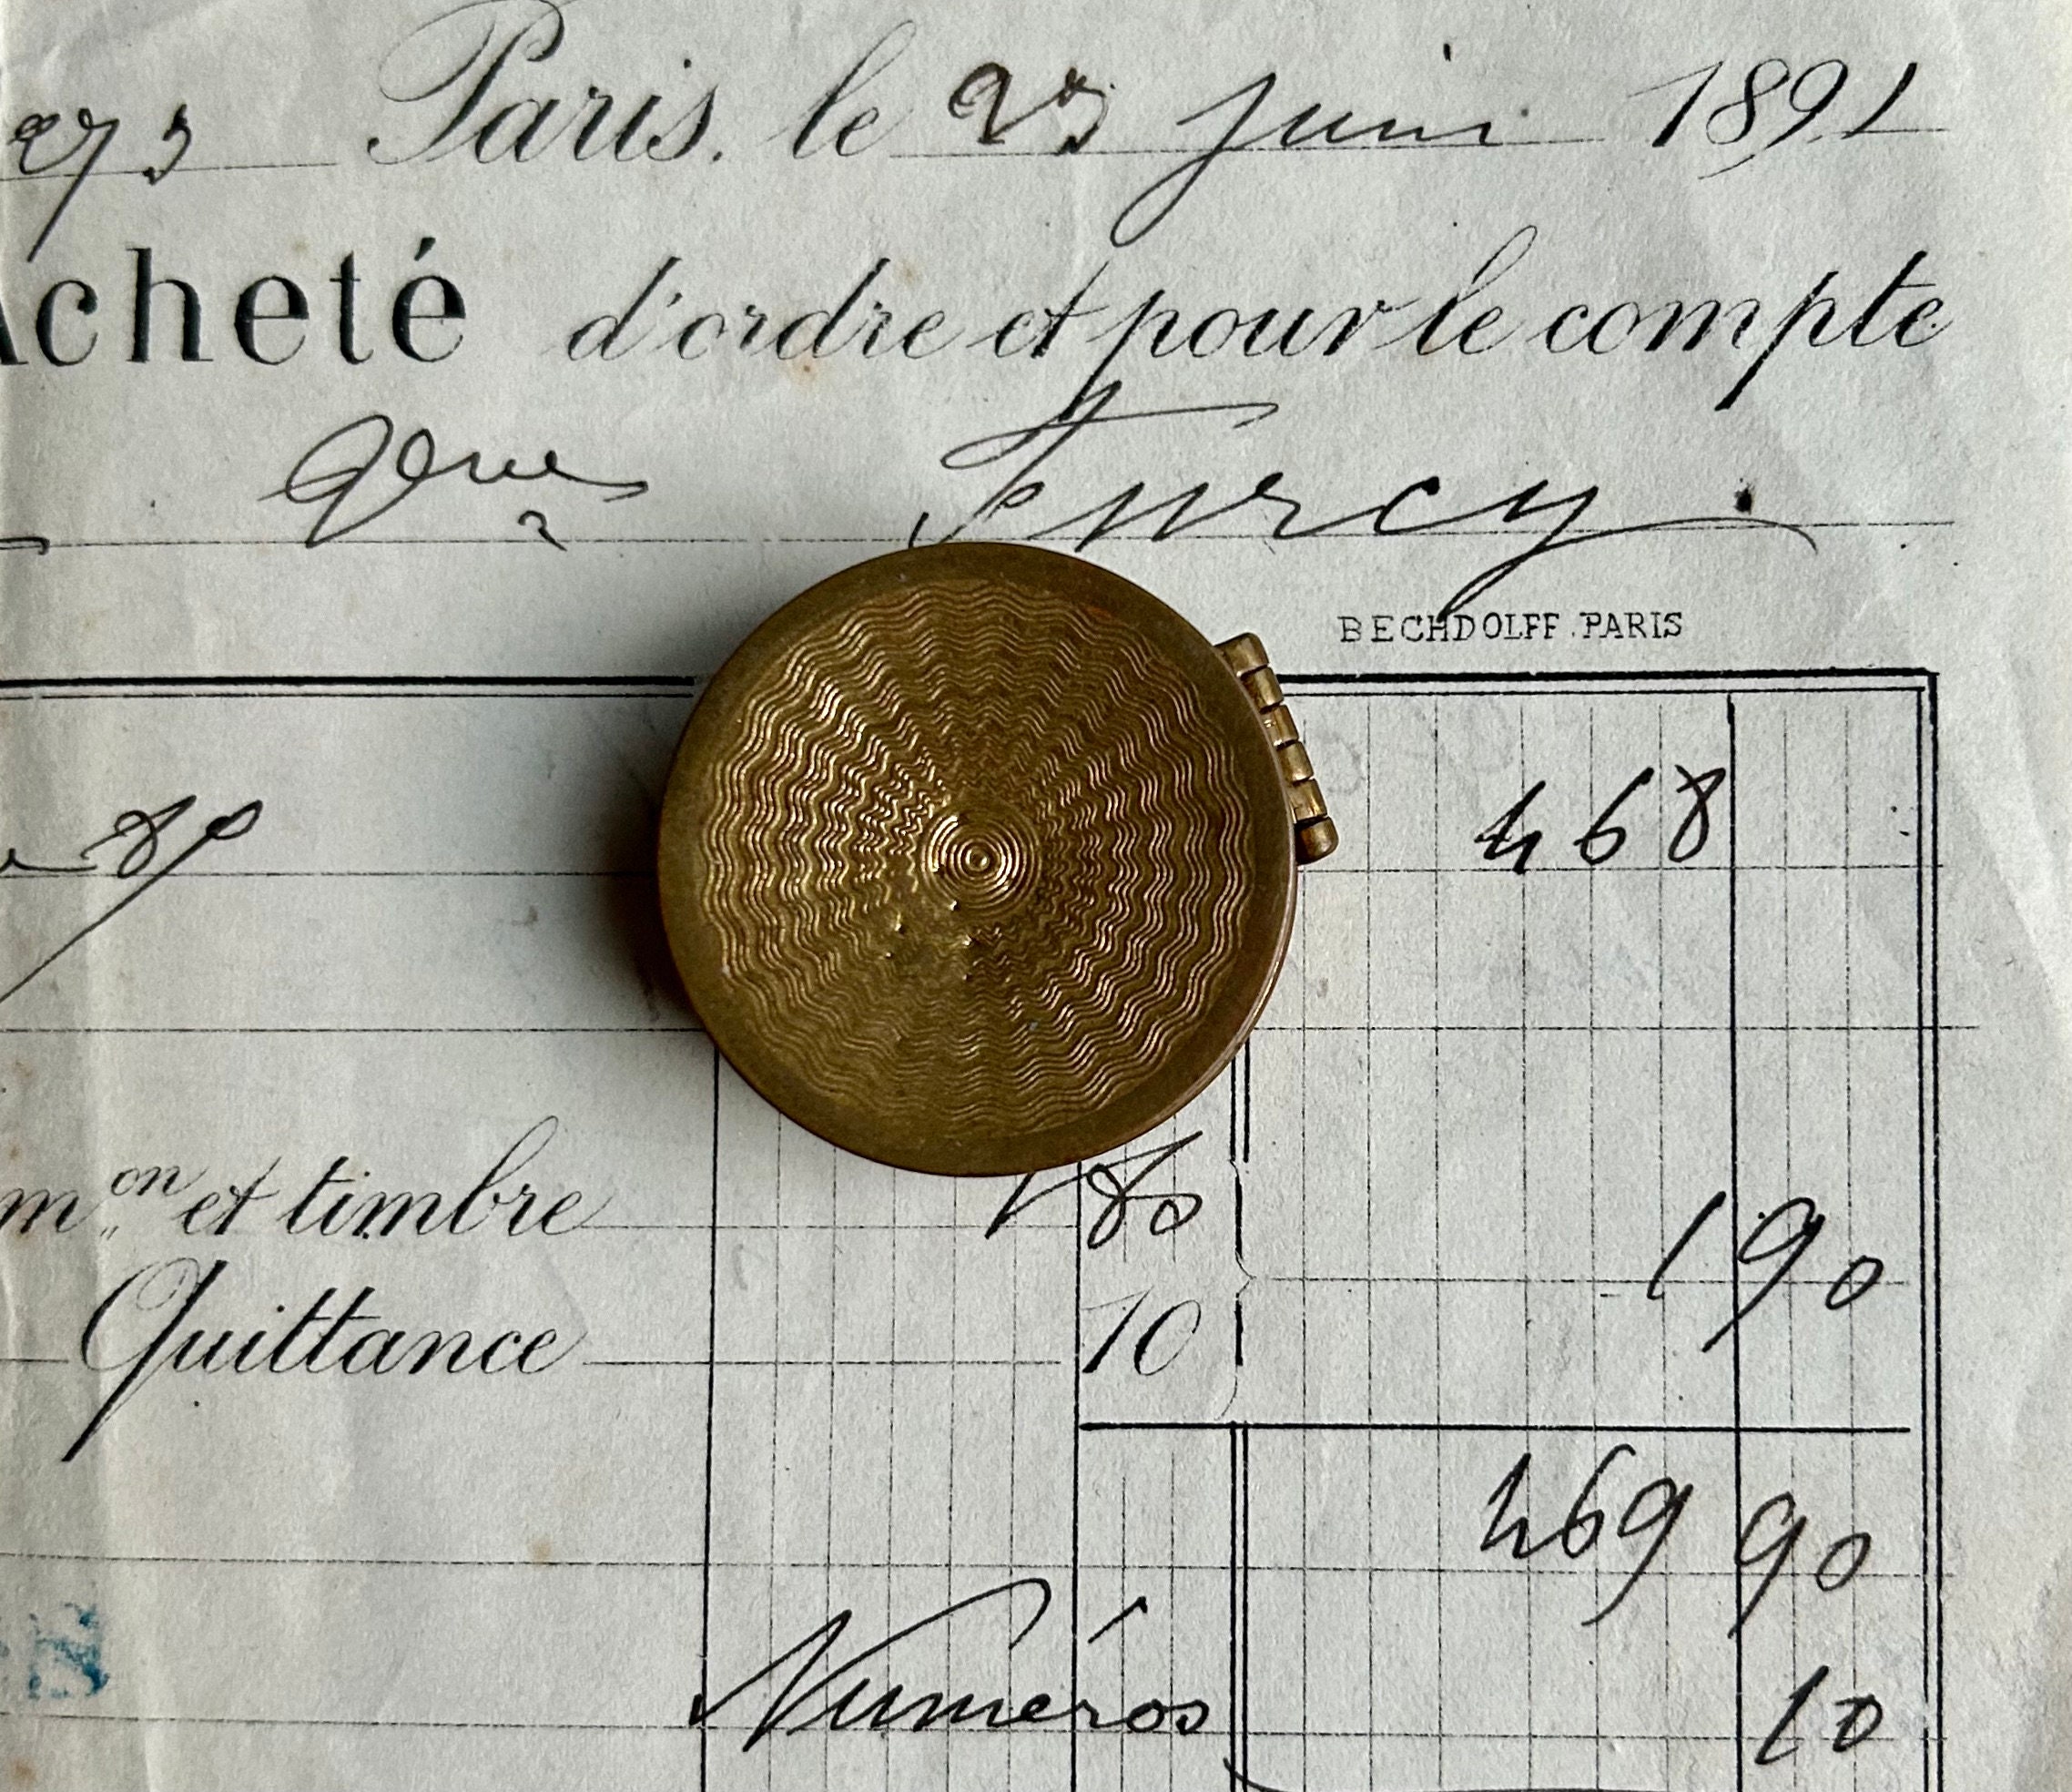 273 Paris, le 23 juin 1891
Acheté d'ordre et pour le compte
Furcy
BECHDOLFF. PARIS
468
on et timbre 1 80
1 90
Quittance 10
469 90
Numéros 10